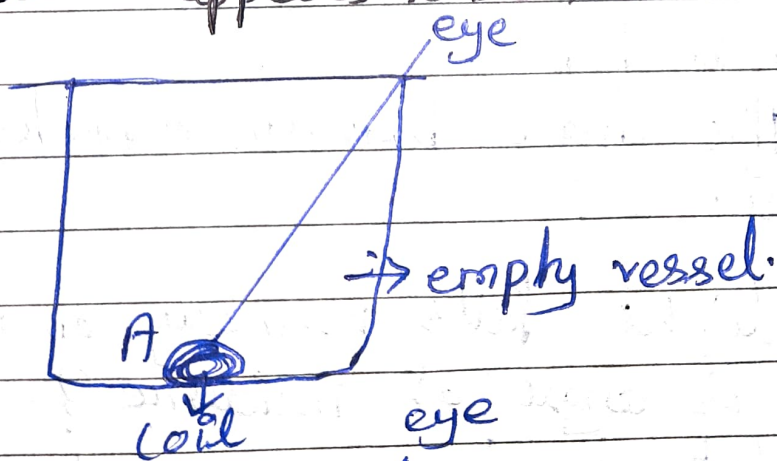 eye
empty vessel.
A
coil
eye